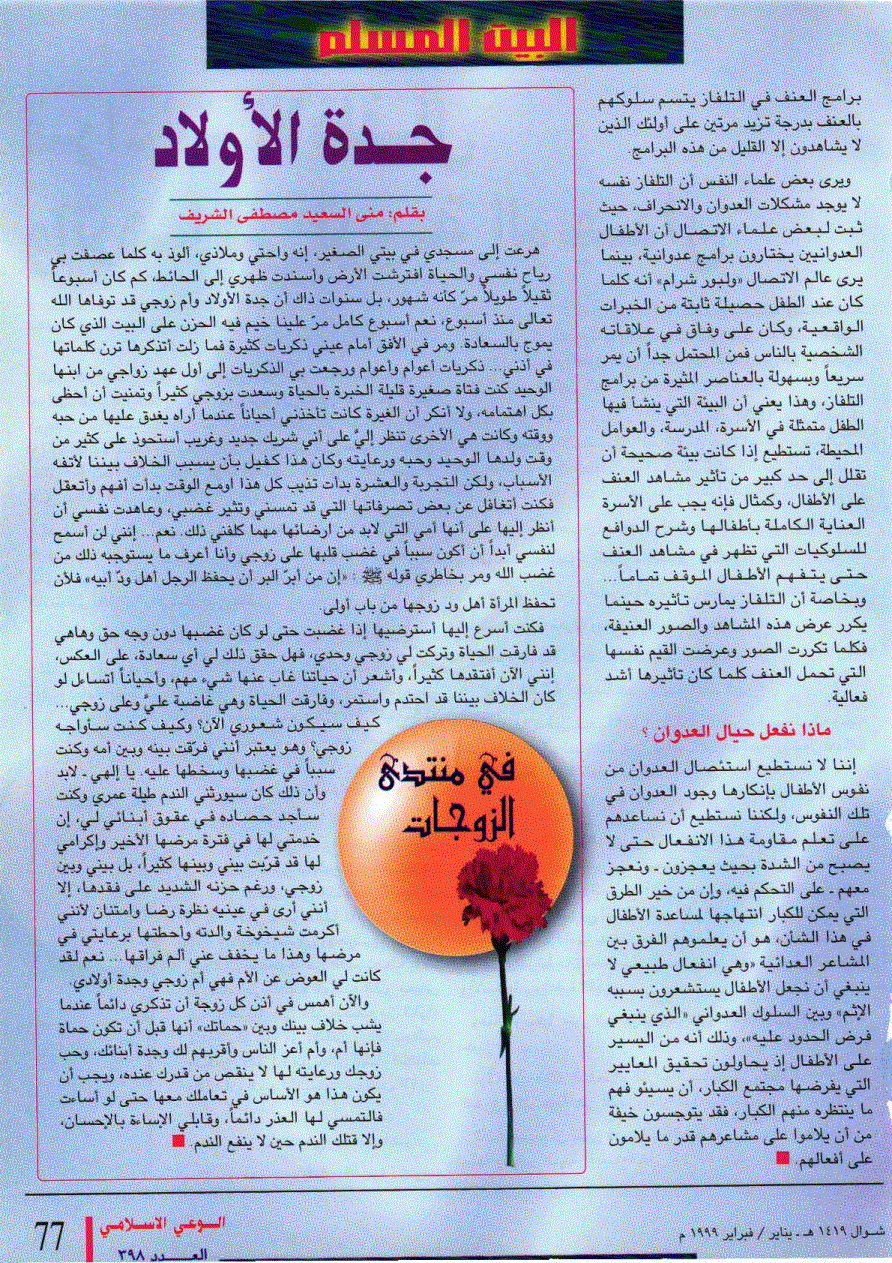 البيت المسلم
برامج العنف في التلفاز يتسم سلوكهم
بالعنف بدرجة تزيد مرتين على أولئك الذين
لا يشاهدون إلا القليل من هذه البرامج.
ويرى بعض علماء النفس أن التلفاز نفسه
لا يوجد مشكلات العدوان والانحراف، حيث
ثبت لبعض علماء الاتصال أن الأطفال
العدوانيين يختارون برامج عدوانية، بينما
يرى عالم الاتصال «ولبور شرام» أنه كلما
كان عند الطفل حصيلة ثابتة من الخبرات
الواقعية، وكان على وفاق في علاقاته
الشخصية بالناس فمن المحتمل جداً أن يمر
سريعاً وبسهولة بالعناصر المثيرة من برامج
التلفاز، وهذا يعني أن البيئة التي ينشأ فيها
الطفل متمثلة في الأسرة، المدرسة، والعوامل
المحيطة، تستطيع إذا كانت بيئة صحيحة أن
تقلل إلى حد كبير من تأثير مشاهد العنف
على الأطفال، وكمثال فإنه يجب على الأسرة
العناية الكاملة بأطفالها وشرح الدوافع
للسلوكيات التي تظهر في مشاهد العنف
حتى يتفهم الأطفال الموقف تماماً...
وبخاصة أن التلفاز يمارس تأثيره حينما
يكرر عرض هذه المشاهد والصور العنيفة،
فكلما تكررت الصور وعرضت القيم نفسها
التي تحمل العنف كلما كان تأثيرها أشد
فعالية.
ماذا نفعل حيال العدوان ؟
إننا لا نستطيع استئصال العدوان من
نفوس الأطفال بإنكارها وجود العدوان في
تلك النفوس، ولكننا نستطيع أن نساعدهم
على تعلم مقاومة هذا الانفعال حتى لا
يصبح من الشدة بحيث يعجزون - ونعجز
معهم - على التحكم فيه، وإن من خير الطرق
التي يمكن للكبار انتهاجها لمساعدة الأطفال
في هذا الشأن، هو أن يعلموهم الفرق بين
المشاعر العدائية «وهي انفعال طبيعي لا
ينبغي أن نجعل الأطفال يستشعرون بسببه
الإثم» وبين السلوك العدواني «الذي ينبغي
فرض الحدود عليه»، وذلك أنه من اليسير
على الأطفال إذ يحاولون تحقيق المعايير
التي يفرضها مجتمع الكبار، أن يسيئو فهم
ما ينتظره منهم الكبار، فقد يتوجسون خيفة
من أن يلاموا على مشاعرهم قدر ما يلامون
على أفعالهم.
جدة الأولاد
بقلم: منى السعيد مصطفى الشريف
هرعت إلى مسجدي في بيتي الصغير، إنه واحتي وملاذي، ألوذ به كلما عصفت بي
رياح نفسي والحياة افترشت الأرض وأسندت ظهري إلى الحائط، كم كان أسبوعاً
ثقيلاً طويلاً مرّ كأنه شهور، بل سنوات ذاك أن جدة الأولاد وأم زوجي قد توفاها الله
تعالى منذ أسبوع، نعم أسبوع كامل مرّ علينا خيم فيه الحزن على البيت الذي كان
يموج بالسعادة. ومر في الأفق أمام عيني ذكريات كثيرة فما زلت أتذكرها ترن كلماتها
في أذني... ذكريات أعوام وأعوام ورجعت بي الذكريات إلى أول عهد زواجي من ابنها
الوحيد كنت فتاة صغيرة قليلة الخبرة بالحياة وسعدت بزوجي كثيراً وتمنيت أن أحظى
بكل اهتمامه، ولا أنكر أن الغيرة كانت تأخذني أحياناً عندما أراه يغدق عليها من حبه
ووقته وكانت هي الأخرى تنظر إليّ على أني شريك جديد وغريب أستحوذ على كثير من
وقت ولدها الوحيد وحبه ورعايته وكان هذا كفيل بأن يسبب الخلاف بيننا لأتفه
الأسباب، ولكن التجربة والعشرة بدأت تذيب كل هذا أومع الوقت بدأت أفهم وأتعقل
فكنت أتغافل عن بعض تصرفاتها التي قد تمسني وتثير غضبي، وعاهدت نفسي أن
أنظر إليها على أنها أمي التي لابد من ارضائها مهما كلفني ذلك. نعم... إنني لن أسمح
لنفسي أبداً أن أكون سبباً في غضب قلبها على زوجي وأنا أعرف ما يستوجبه ذلك من
غضب الله ومر بخاطري قوله ﷺ : «إن من أبرّ البر أن يحفظ الرجل أهل ودّ أبيه» فلأن
تحفظ المرأة أهل ود زوجها من باب أولى.
فكنت أسرع إليها أسترضيها إذا غضبت حتى لو كان غضبها دون وجه حق وهاهي
قد فارقت الحياة وتركت لي زوجي وحدي، فهل حقق ذلك لي أي سعادة، على العكس،
إنني الآن أفتقدها كثيراً، وأشعر أن حياتنا غاب عنها شيء مهم، وأحياناً أتساءل لو
كان الخلاف بيننا قد احتدم واستمر، وفارقت الحياة وهي غاضبة عليّ وعلى زوجي...
كيف سيكون شعوري الآن؟ وكيف كنت سأواجه
زوجي؟ وهو يعتبر أنني فرّقت بينه وبين أمه وكنت
سبباً في غضبها وسخطها عليه. يا إلهي - لابد
وأن ذلك كان سيورثني الندم طيلة عمري وكنت
سأجد حصاده في عقوق أبنائي لي، إن
خدمتي لها في فترة مرضها الأخير وإكرامي
لها قد قرّبت بيني وبينها كثيراً، بل بيني وبين
زوجي، ورغم حزنه الشديد على فقدها، إلا
أنني أرى في عينيه نظرة رضا وامتنان لأنني
أكرمت شيخوخة والدته وأحطتها برعايتي في
مرضها وهذا ما يخفف عني ألم فراقها... نعم لقد
كانت لي العوض عن الأم فهي أم زوجي وجدة أولادي.
والآن أهمس في أذن كل زوجة أن تذكري دائماً عندما
يشب خلاف بينك وبين «حماتك» أنها قبل أن تكون حماة
فإنها أم، وأم أعز الناس وأقربهم لك وجدة أبنائك، وحب
زوجك ورعايته لها لا ينقص من قدرك عنده، ويجب أن
يكون هذا هو الأساس في تعاملك معها حتى لو أساءت
فالتمسي لها العذر دائماً، وقابلي الإساءة بالإحسان،
وإلا قتلك الندم حين لا ينفع الندم.
في منتدى
الزوجات
شوال ١٤١٩ هـ - يناير / فبراير ١٩٩٩ م
الوعي الاسلامي
العدد ٣٩٨
77